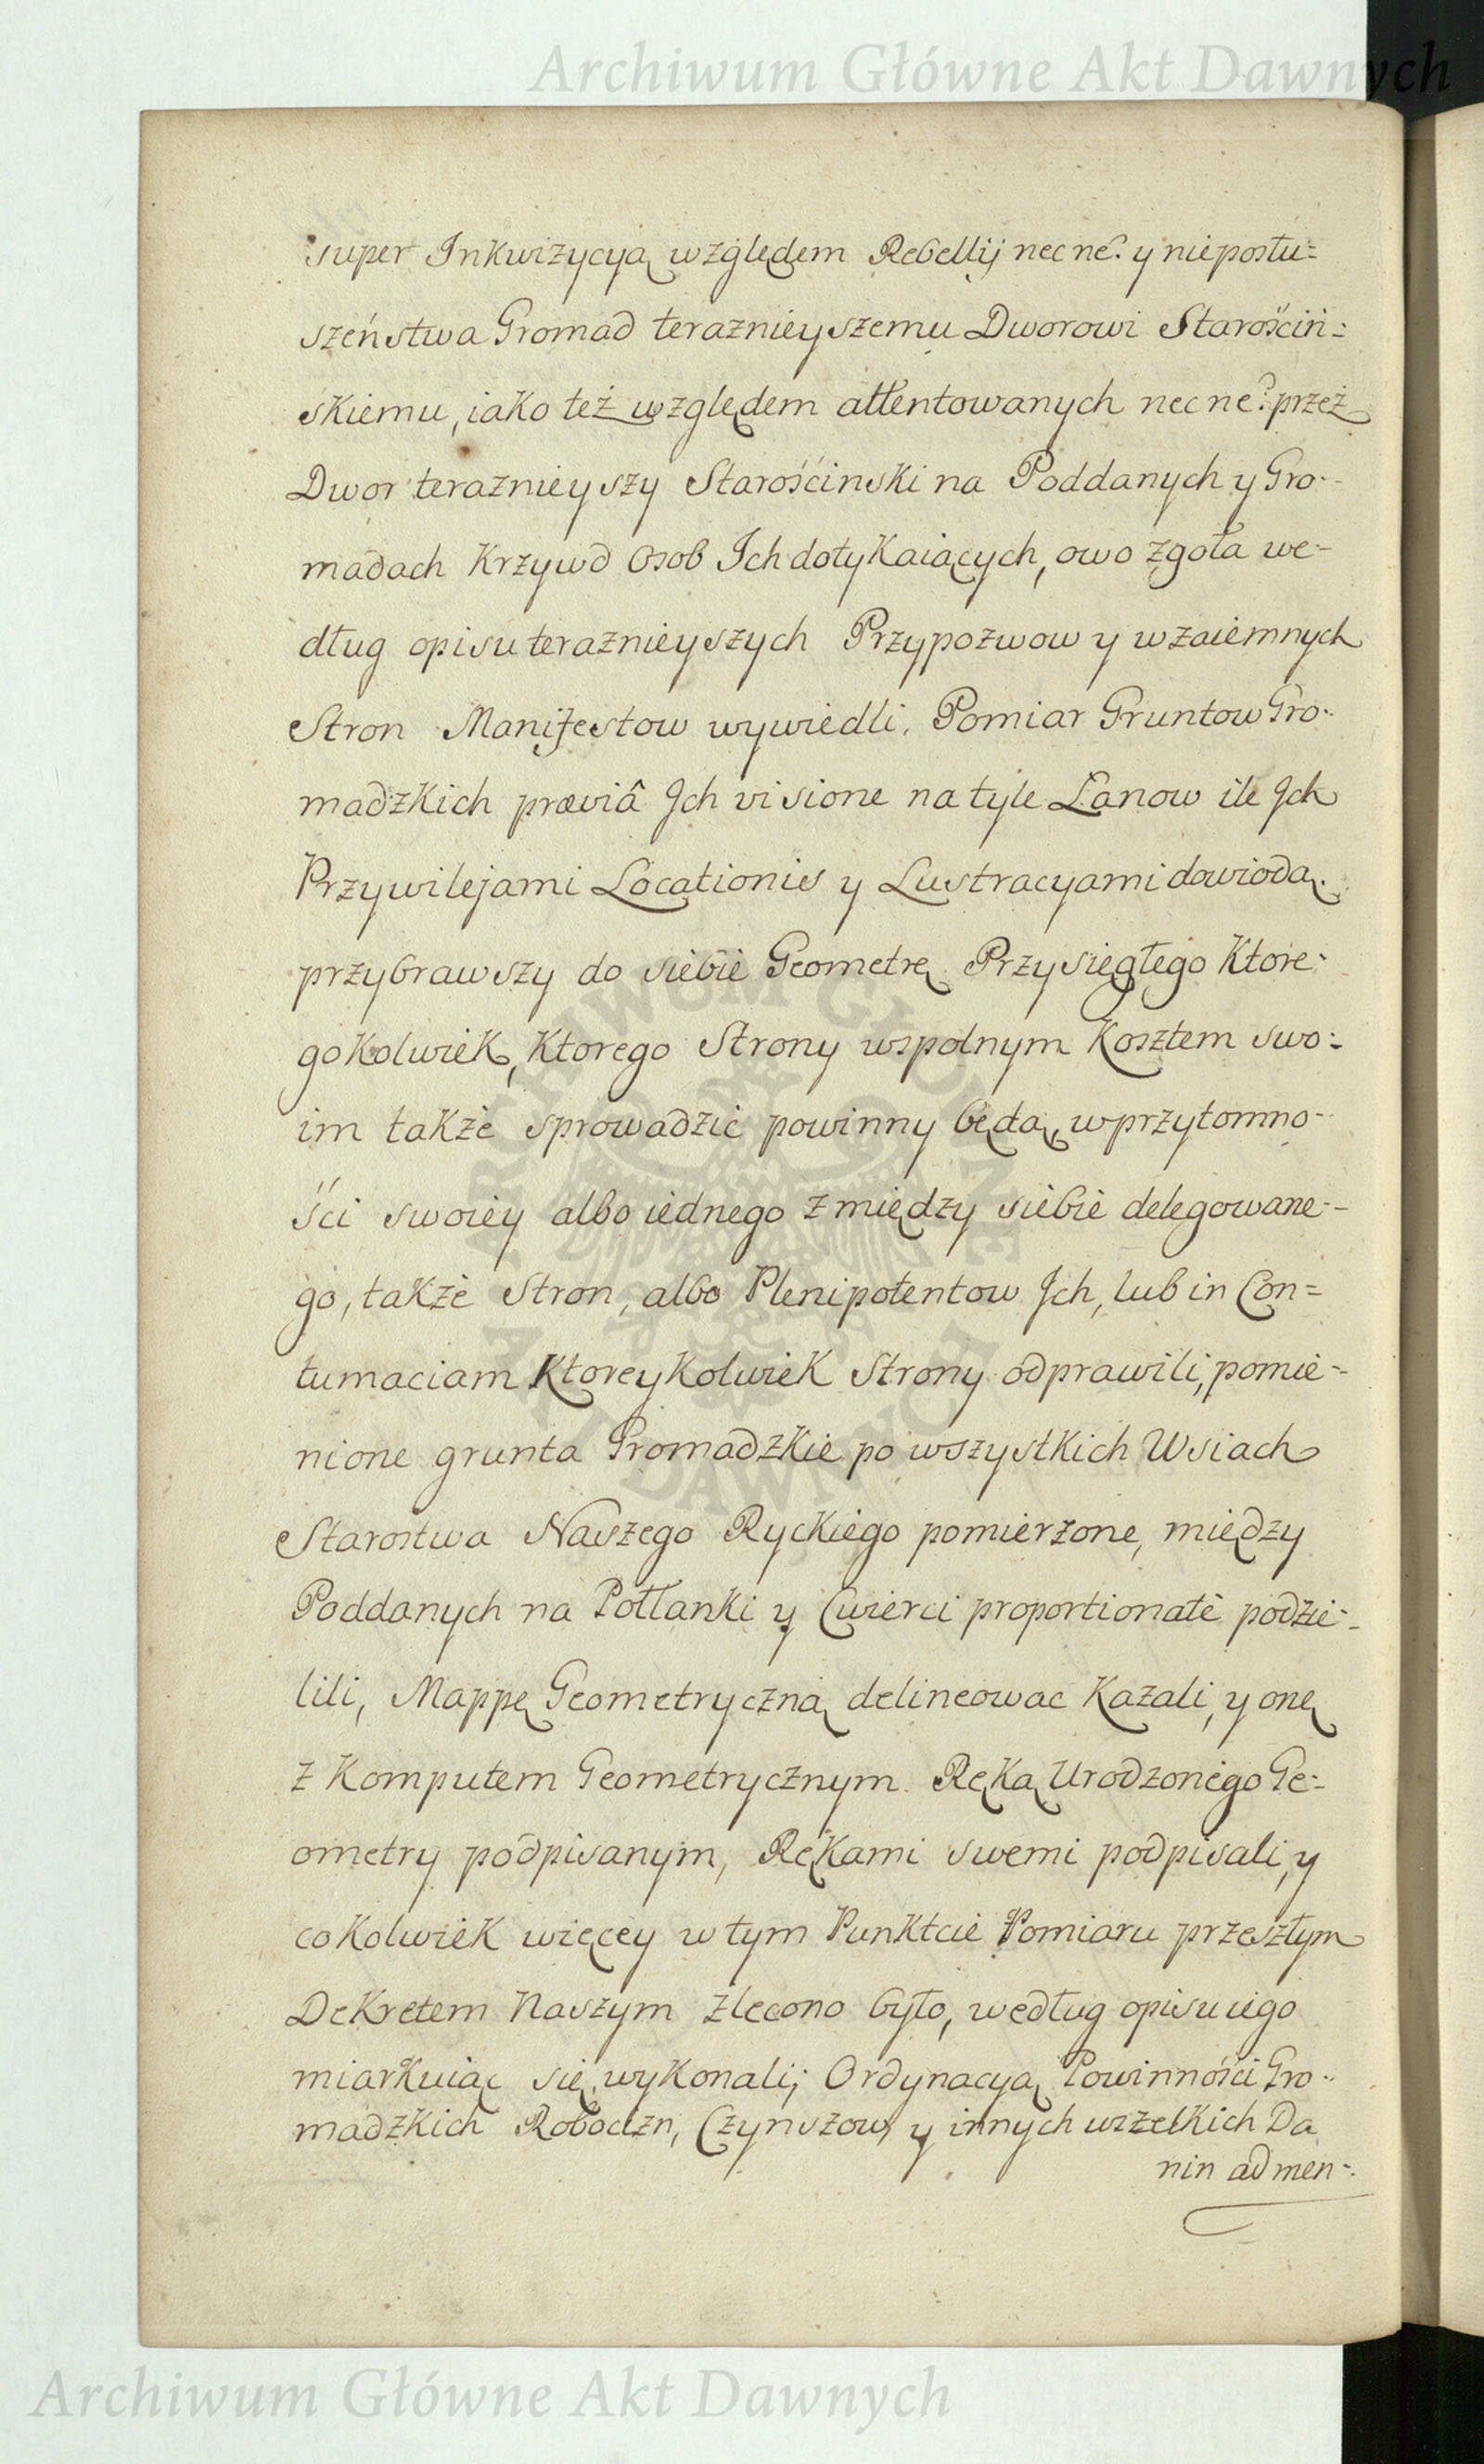 Archiwum Główne Akt Dawnych
super Inkwizycyą względem Rebellij nec ne? y nieposłu=
szeństwa Gromad teraznieyszemu Dworowi Starościń=
skiemu, iako też względem attentowanych nec ne? przez
Dwor teraznieyszy Starościnski na Poddanych y Gro-
madach Krzywd Osob Ich dotykaiących, owo zgoła we-
dług opisu teraznieyszych Przypozwow y wzaiemnych
Stron Manifestow wywiedli, Pomiar Gruntow Gro-
madzkich præviâ Ich visione na tyle Łanow ile Ich
Przywilejami Locationis y Lustracyami dowiodą.
przybrawszy do siebie Geometrę Przysięgłego Ktore-
gokolwiek, Ktorego Strony wspolnym Kosztem swo-
im także sprowadzić powinny będą, w przytomno-
ści swoiey albo iednego z między siebie delegowane-
go, także Stron, albo Plenipotentow Ich, lub in Con=
tumaciam Ktoreykolwiek Strony odprawili, pomie-
nione grunta Gromadzkie po wszystkich Wsiach
Starostwa Naszego Ryckiego pomierzone, między
Poddanych na Połłanki y Cwierci proportionatè podzie-
lili, Mappę Geometryczną delineowac Kazali, y onę
z Komputem Geometrycznym Ręką Urodzonego Ge-
ometry podpisanym, Rękami swemi podpisali, y
co Kolwiek więcey w tym Punktcie Pomiaru przeszłym
Dekretem Naszym zlecono było, według opisu iego
miarkuiąc się, wykonali; Ordynacyą Powinności Gro-
madzkich Robocizn, Czynszow, y innych wszelkich Da
nin ad men-
ARCHIWUM GŁÓWNE AKT DAWNYCH
Archiwum Główne Akt Dawnych